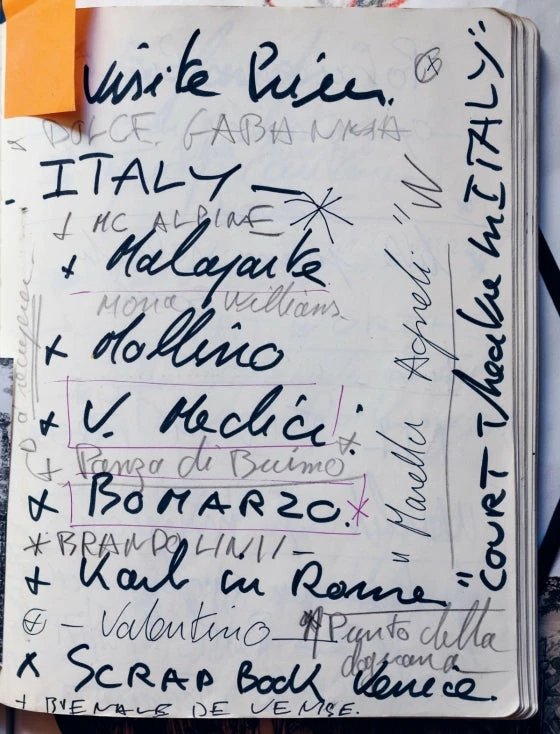 Visite
DOLCE. GABANNA
ITALY —
+ MC ALPINE
+ Malaparte
Mona Williams.
+ Mollino
+ V. Medici.
+ Panza di Buimo
+ BOMARZO.
* BRANDOLINII –
+ Karl in Rome
– Valentino
Punto della
dogana
x SCRAP BOOK Venice.
+ BIENALE DE VENISE.
"Marella Agneli" W
"COURT Theatre in ITALY"